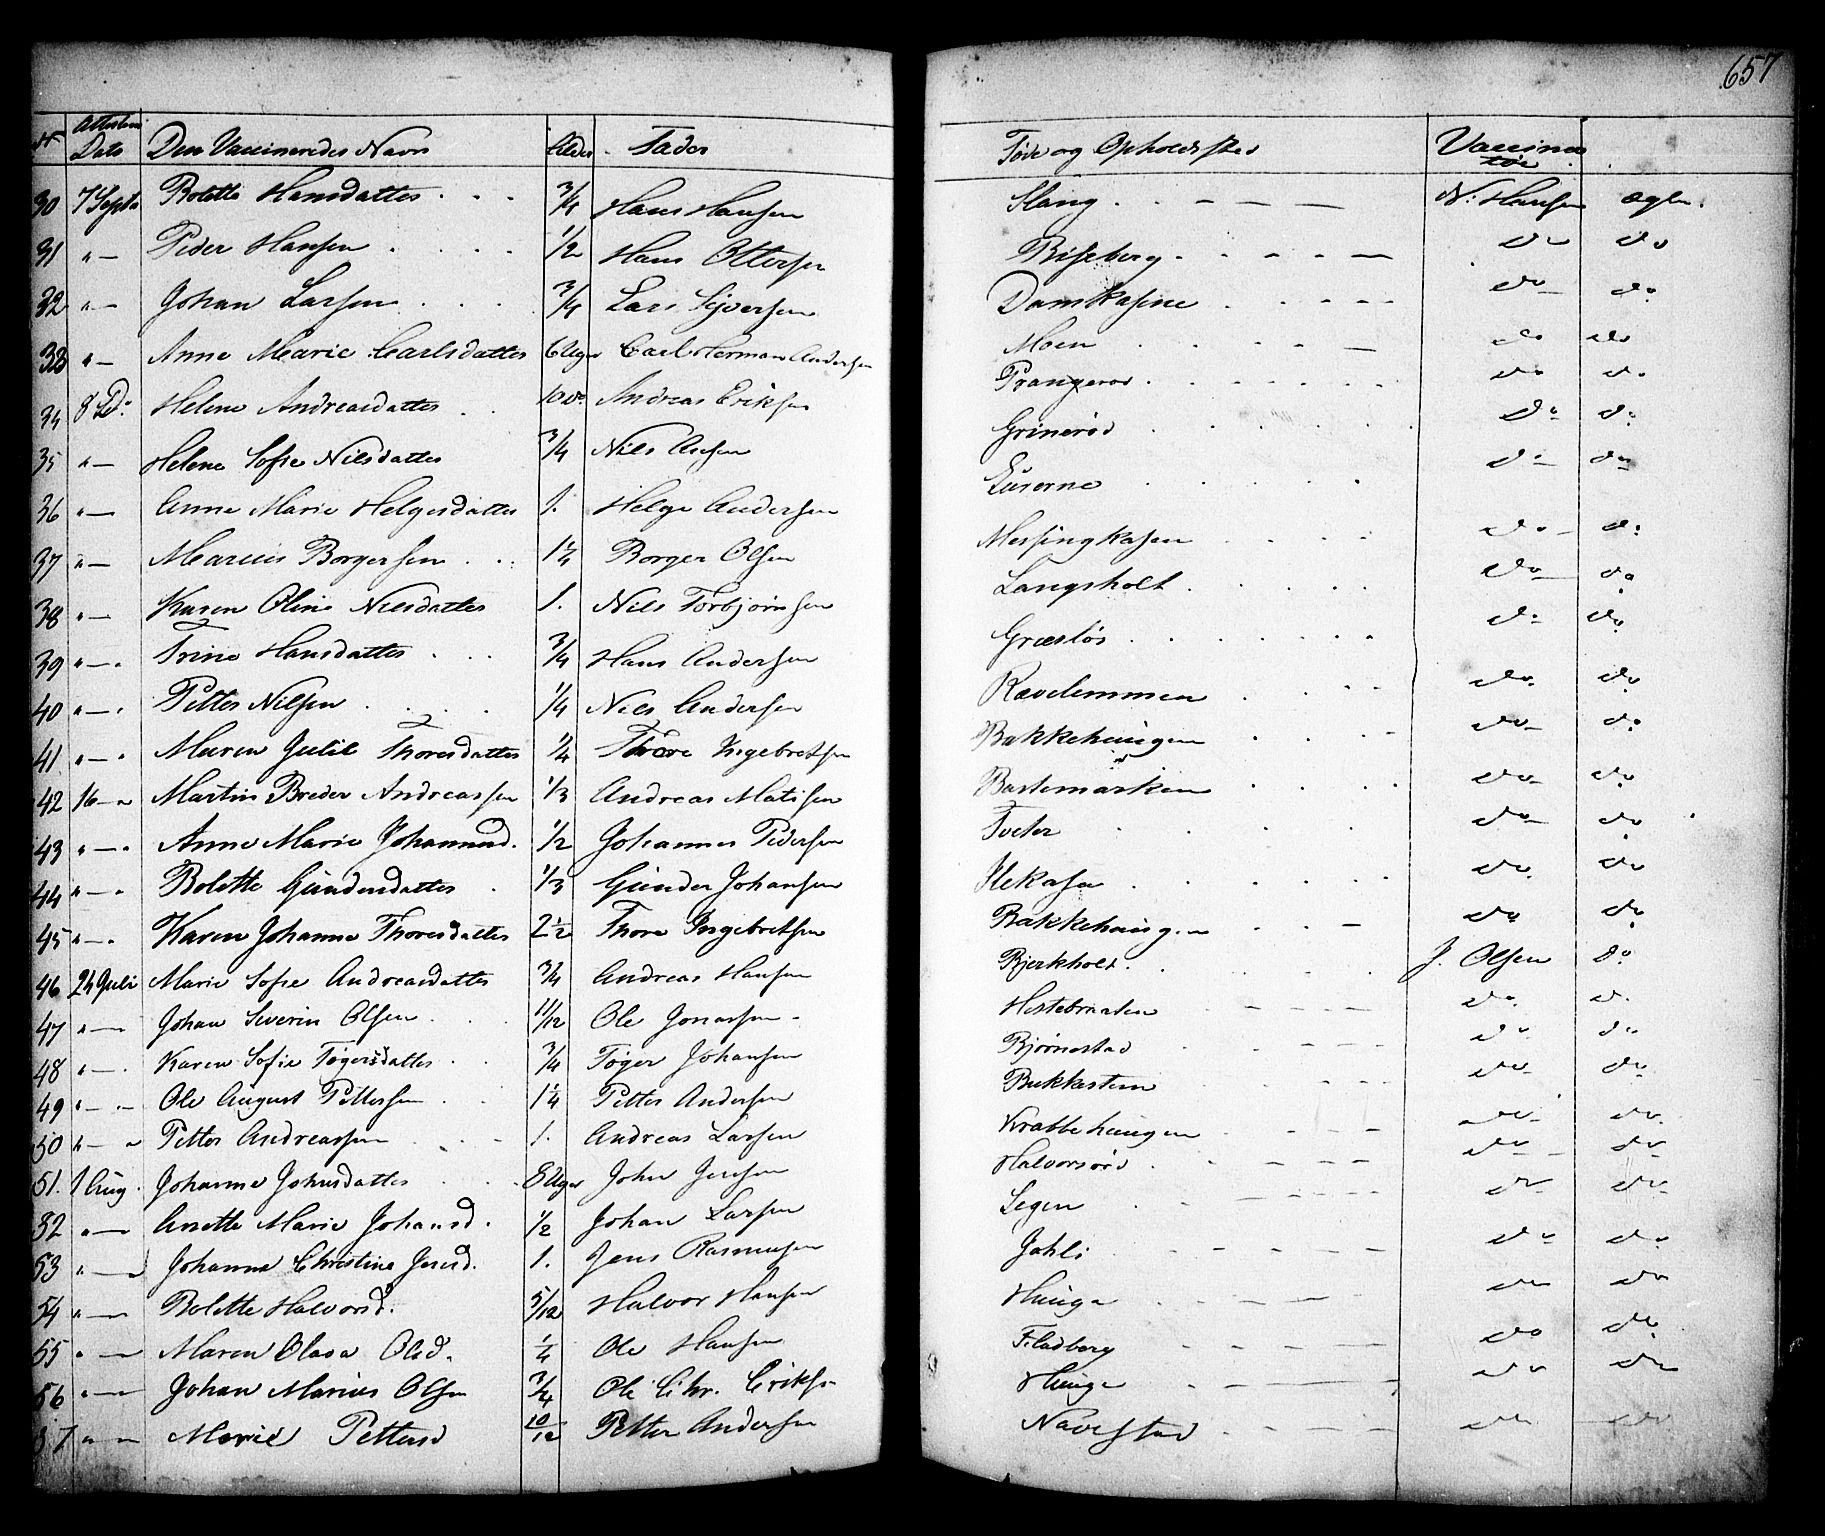 657
N Attestens Dato Den Vaccineredes Navn Alder Fader Føde og Opholdssted Vaccinatør
30 7 Septb Bolette Hansdatter 3/4 Hans Hansen Slang N. Hansen ægte
31 "— Peder Hansen 1/2 Hans Ottersen Bisseberg do do
32 "— Johan Larsen 3/4 Lars Sjversen Damkasene do do
33 "— Anne Marie Carlsdatter 6 Uger Carl Herman Andersen Moen do do
34 8 Do Helene Andreasdatter 10 do Andreas Eriksen Prangerød do do
35 "— Helene Sofie Nilsdatter 3/4 Nils Grinerød do do
36 "— Anne Marie Helgesdatter 1. Helge Andersen do do
37 "— Marcus Borgersen 1 1/2 Borger Olsen Messingkasen do do
38 "— Karen Oline Nilsdatter 1. Nils Torbjørnsen Langsholt do do
39 "— Trine Hansdatter 3/4 Hans Andersen Græsløs do do
40 "— Petter Nilsen 1/4 Nils Andersen Ravelemmen do do
41 "— Maren Julie Thoresdatter 1/4 Thore Ingebretsen Bakkehaugen do do
42 16— Martin Breder Andreassen 1/3 Andreas Matisen Bastemarken do do
43 "— Anne Marie Johannesd. 1/2 Johannes Pedersen Tveter do do
44 "— Bolette Gundersdatter 1/3 Gunder Johansen do do
45 "— Karen Johanne Thoresdatter 2 1/2 Thore Ingebretsen Bakkehaugen do do
46 24 Juli Marie Sofie Andreasdatter 3/4 Andreas Hansen Bjerkholt J. Olsen do
47 "— Johan Severin Olsen 11/12 Ole Jonassen Hestebraaten do do
48 "— Karen Sofie Tøgersdatter 3/4 Tøger Johansen Bjørnestad do do
49 "— Ole August Pettersen 1 1/4 Petter Andersen Bukkesten do do
50 "— Petter Andreassen 1. Andreas Larsen Krabbehaugen do do
51. 1 Aug. Johanne Johnsdatter 8 Uger John Jensen Halvorsrød do do
52 "— Anette Marie Johansd. 1/2 Johan Larsen Segen do do
53 "— Johanne Christine Jensd. 1. Jens Rasmusen Johli do do
54 "— Bolette Halvorsd. 5/12 Halvor Hansen Hauge do do
55 "— Maren Olava Olsd. 1/4 Ole Hansen Fladberg do do
56 "— Johan Marius Olsen 3/4 Ole Chr. Eriks. Hauge do do
57 "— Marie Pettersd 10/12 Petter Andersen Navestad do do